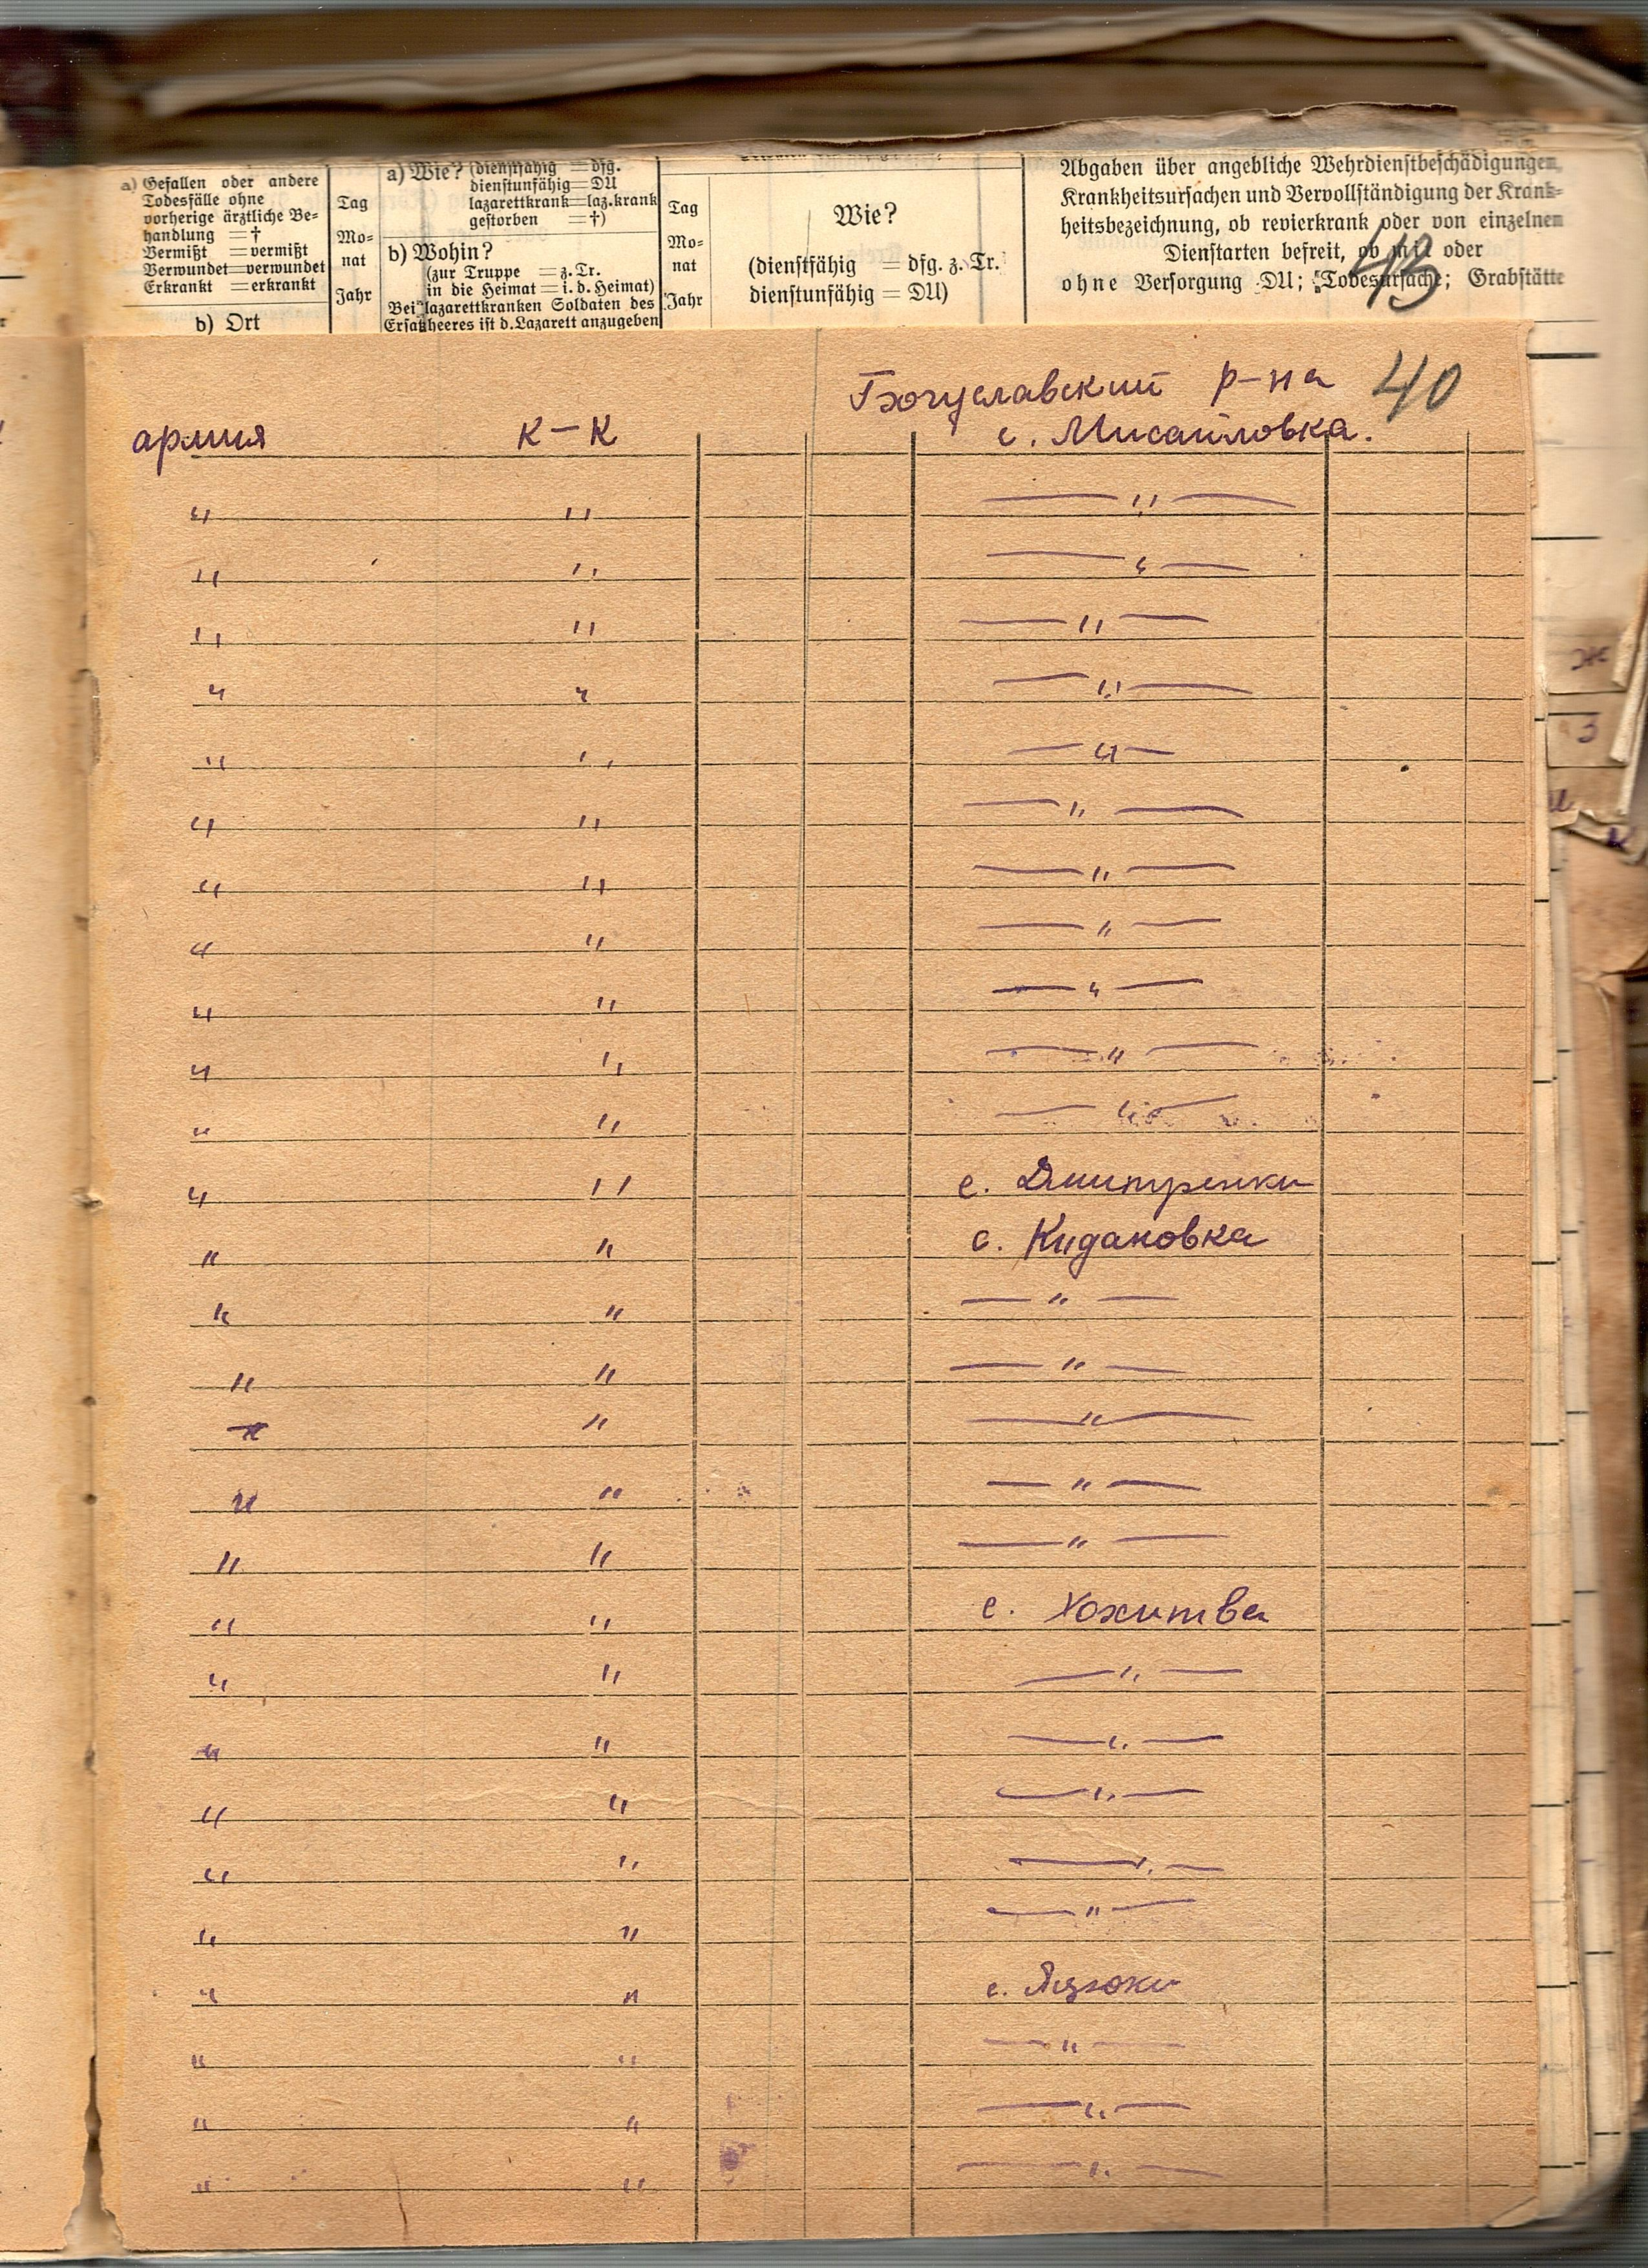 a) Gefallen oder andere
Todesfälle ohne
vorherige ärztliche Be=
handlung = †
Vermißt = vermißt
Verwundet = verwundet
Erkrankt = erkrankt
b) Ort
Tag
Mo=
nat
Jahr
a) Wie? (dienstfähig = dfg.
dienstunfähig = DU
lazarettkrank = laz.krank
gestorben = †)
b) Wohin?
(zur Truppe = z. Tr.
in die Heimat = i. d. Heimat)
Bei lazarettkranken Soldaten des
Ersatzheeres ist d. Lazarett anzugeben
Tag
Mo=
nat
Jahr
Wie?
(dienstfähig = dfg. z. Tr.
dienstunfähig = DU)
Abgaben über angebliche Wehrdienstbeschädigungen,
Krankheitsursachen und Vervollständigung der Krank=
heitsbezeichnung, ob revierkrank oder von einzelnen
Dienstarten befreit, ob mit oder
ohne Versorgung DU; Todesursache; Grabstätte
43
Богуславский р-на 40
армия к-к с. Мисайловка.
" " — " —
" " — " —
" " — " —
" " — " —
" " — " —
" " — " —
" " — " —
" " — " —
" " — " —
" " — " —
" " — " —
" " с. Дмитренки
" " с. Кидановка
" " — " —
" " — " —
" " — " —
" " — " —
" " — " —
" " с. Хохитва
" " — " —
" " — " —
" " — " —
" " — " —
" " — " —
" " с. Яцюки
" " — " —
" " — " —
" " — " —